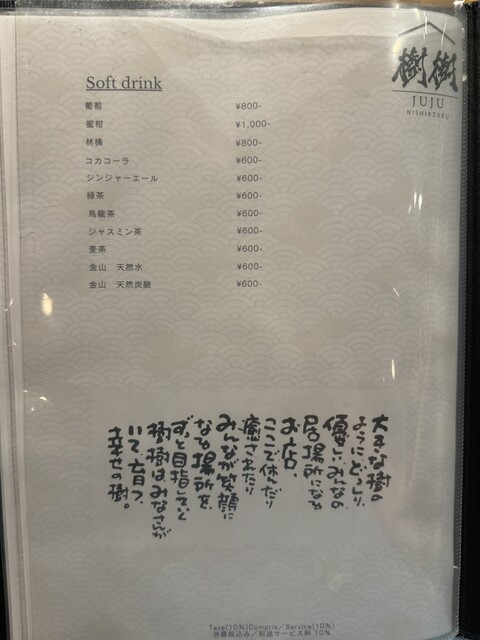 樹樹
JUJU
NISHIATABU
Soft drink
葡萄 ¥800-
蜜柑 ¥1,000-
林檎 ¥800-
コカコーラ ¥600-
ジンジャーエール ¥600-
緑茶 ¥600-
烏龍茶 ¥600-
ジャスミン茶 ¥600-
麦茶 ¥600-
金山 天然水 ¥600-
金山 天然炭酸 ¥600-
大きな樹の
ようにどっしり、
優しい、みんなの
居場所になる
お店。
ここで休んだり
癒されたり
みんなが笑顔に
なる場所を
ずっと目指していく
樹樹は、みなさんが
いて育つ、
幸せの樹。
Taxe(10%)Compris／Service(10%)
消費税込み／別途サービス料 10%